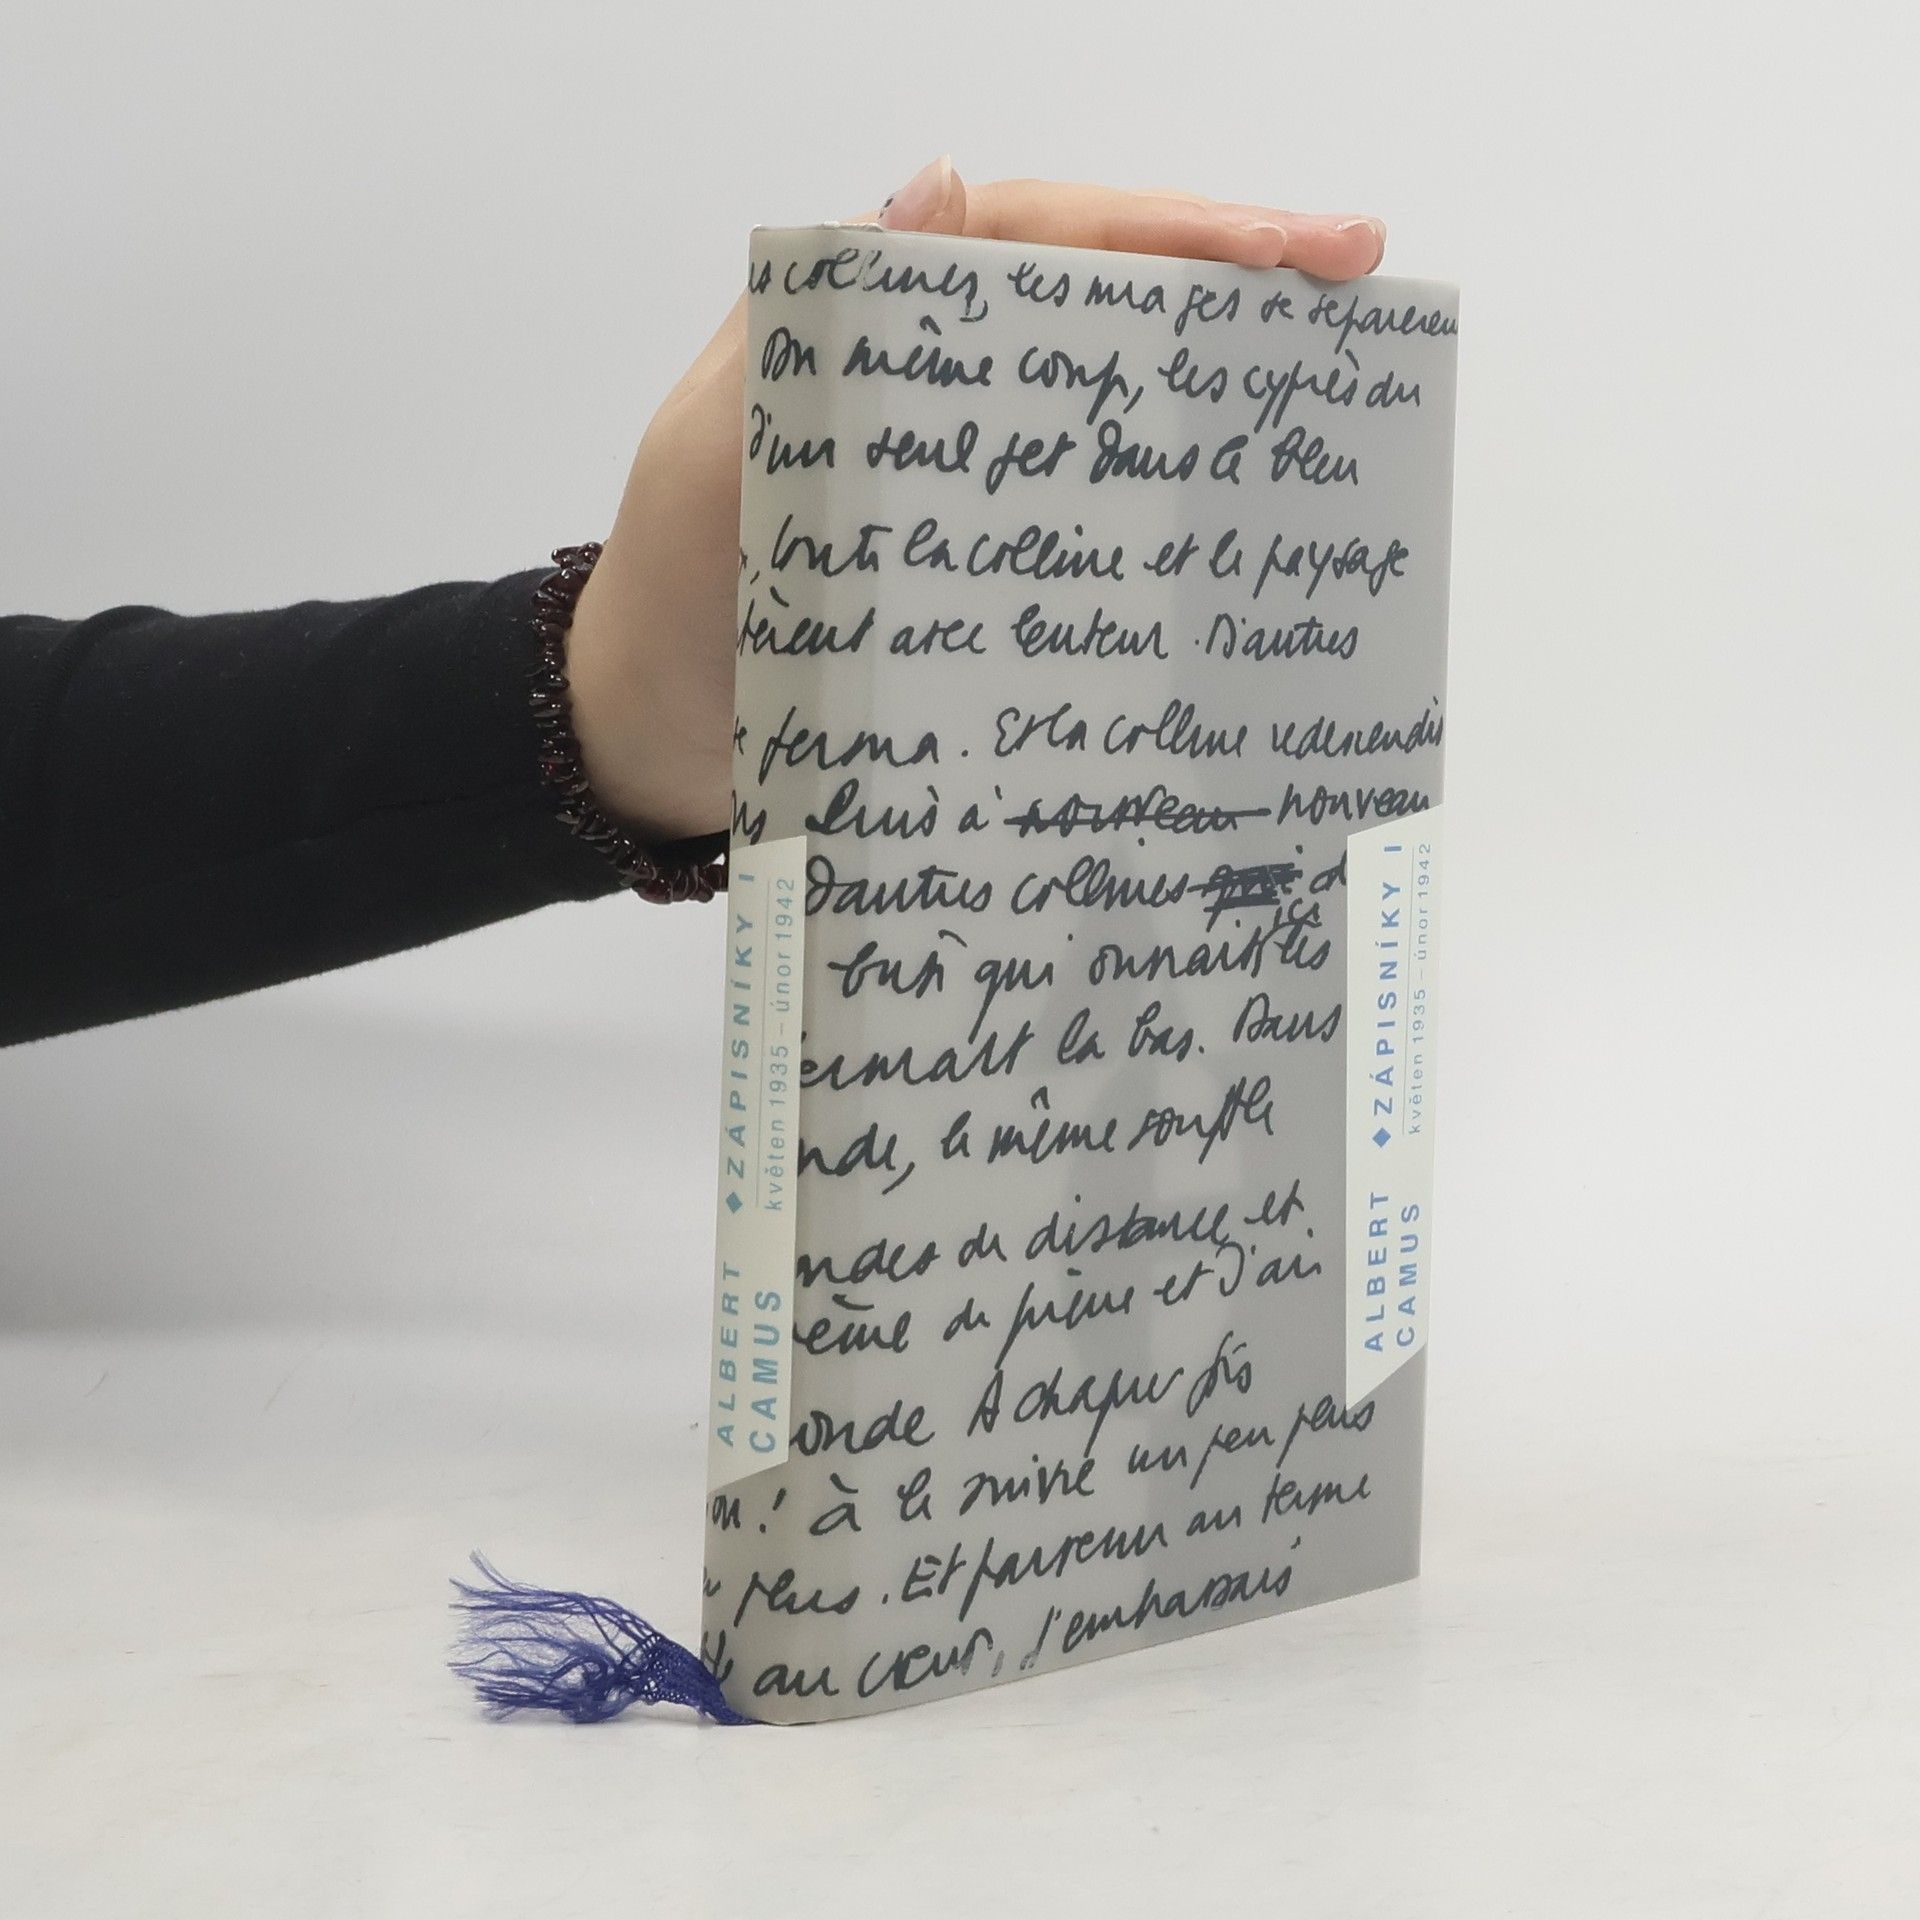 collines, les nuages se séparèren
Du même coup, les cyprès du
d'un seul jet dans le bleu
toute la colline et le paysage
tèrent avec lenteur. D'autres
ferma. Et la colline redescendit
puis à nouveau nouveau
d'autres collines qui
ici
qui les
fermait la bas. Dans
nde, le même souffle
ndes de distance et
ème de pierre et d'air
onde A chaque fois
! à le suivre un peu plus
plus. Et parvenu au terme
au cœur, j'embrassais
ALBERT ◆ ZÁPISNÍKY I
CAMUS květen 1935 – únor 1942
ALBERT ◆ ZÁPISNÍKY I
CAMUS květen 1935 – únor 1942